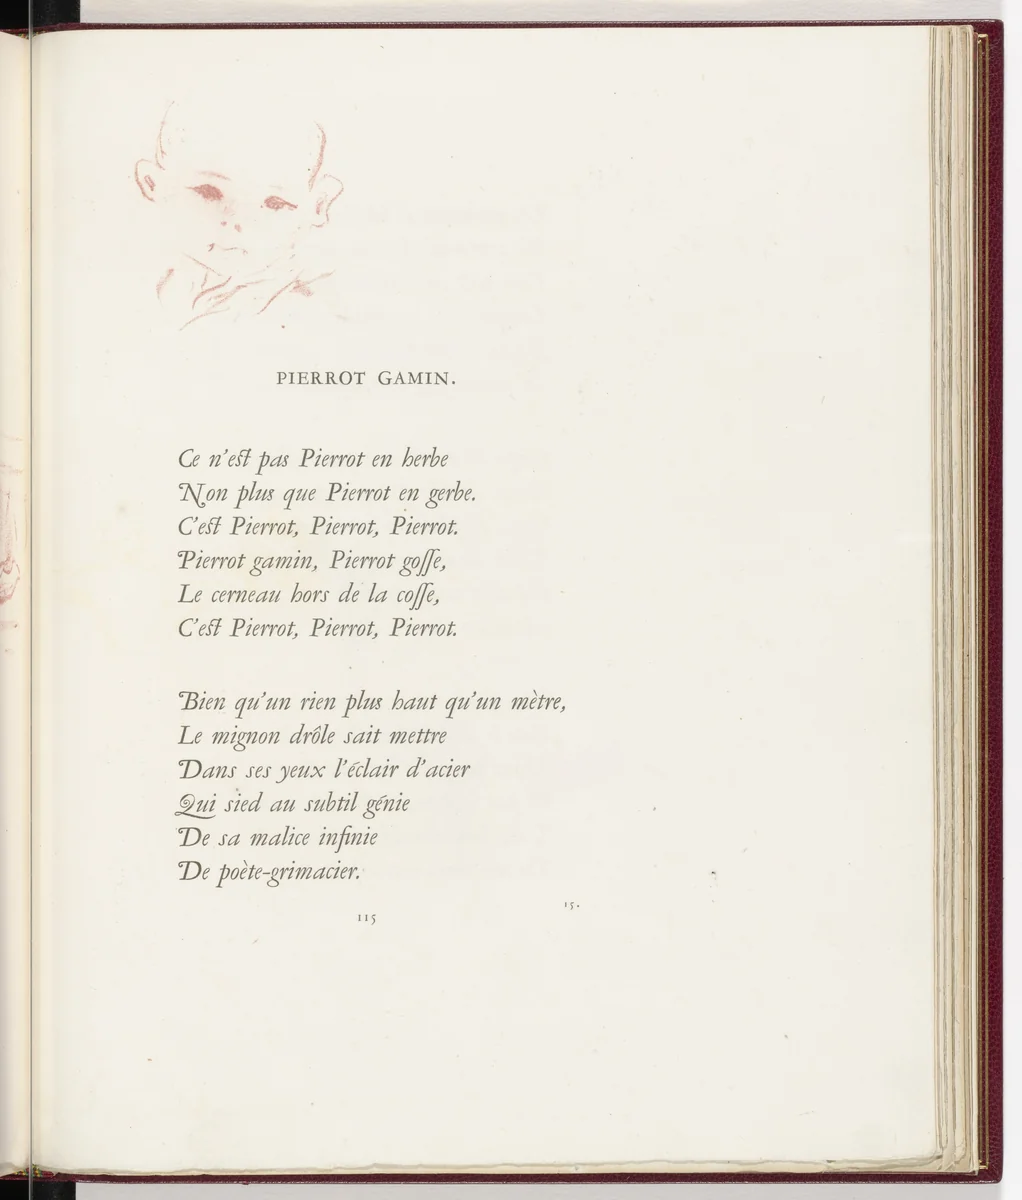 PIERROT GAMIN.
Ce n'est pas Pierrot en herbe
Non plus que Pierrot en gerbe.
C'est Pierrot, Pierrot, Pierrot.
Pierrot gamin, Pierrot gosse,
Le cerneau hors de la cosse,
C'est Pierrot, Pierrot, Pierrot.
Bien qu'un rien plus haut qu'un mètre,
Le mignon drôle sait mettre
Dans ses yeux l'éclair d'acier
Qui sied au subtil génie
De sa malice infinie
De poète-grimacier.
15.
115